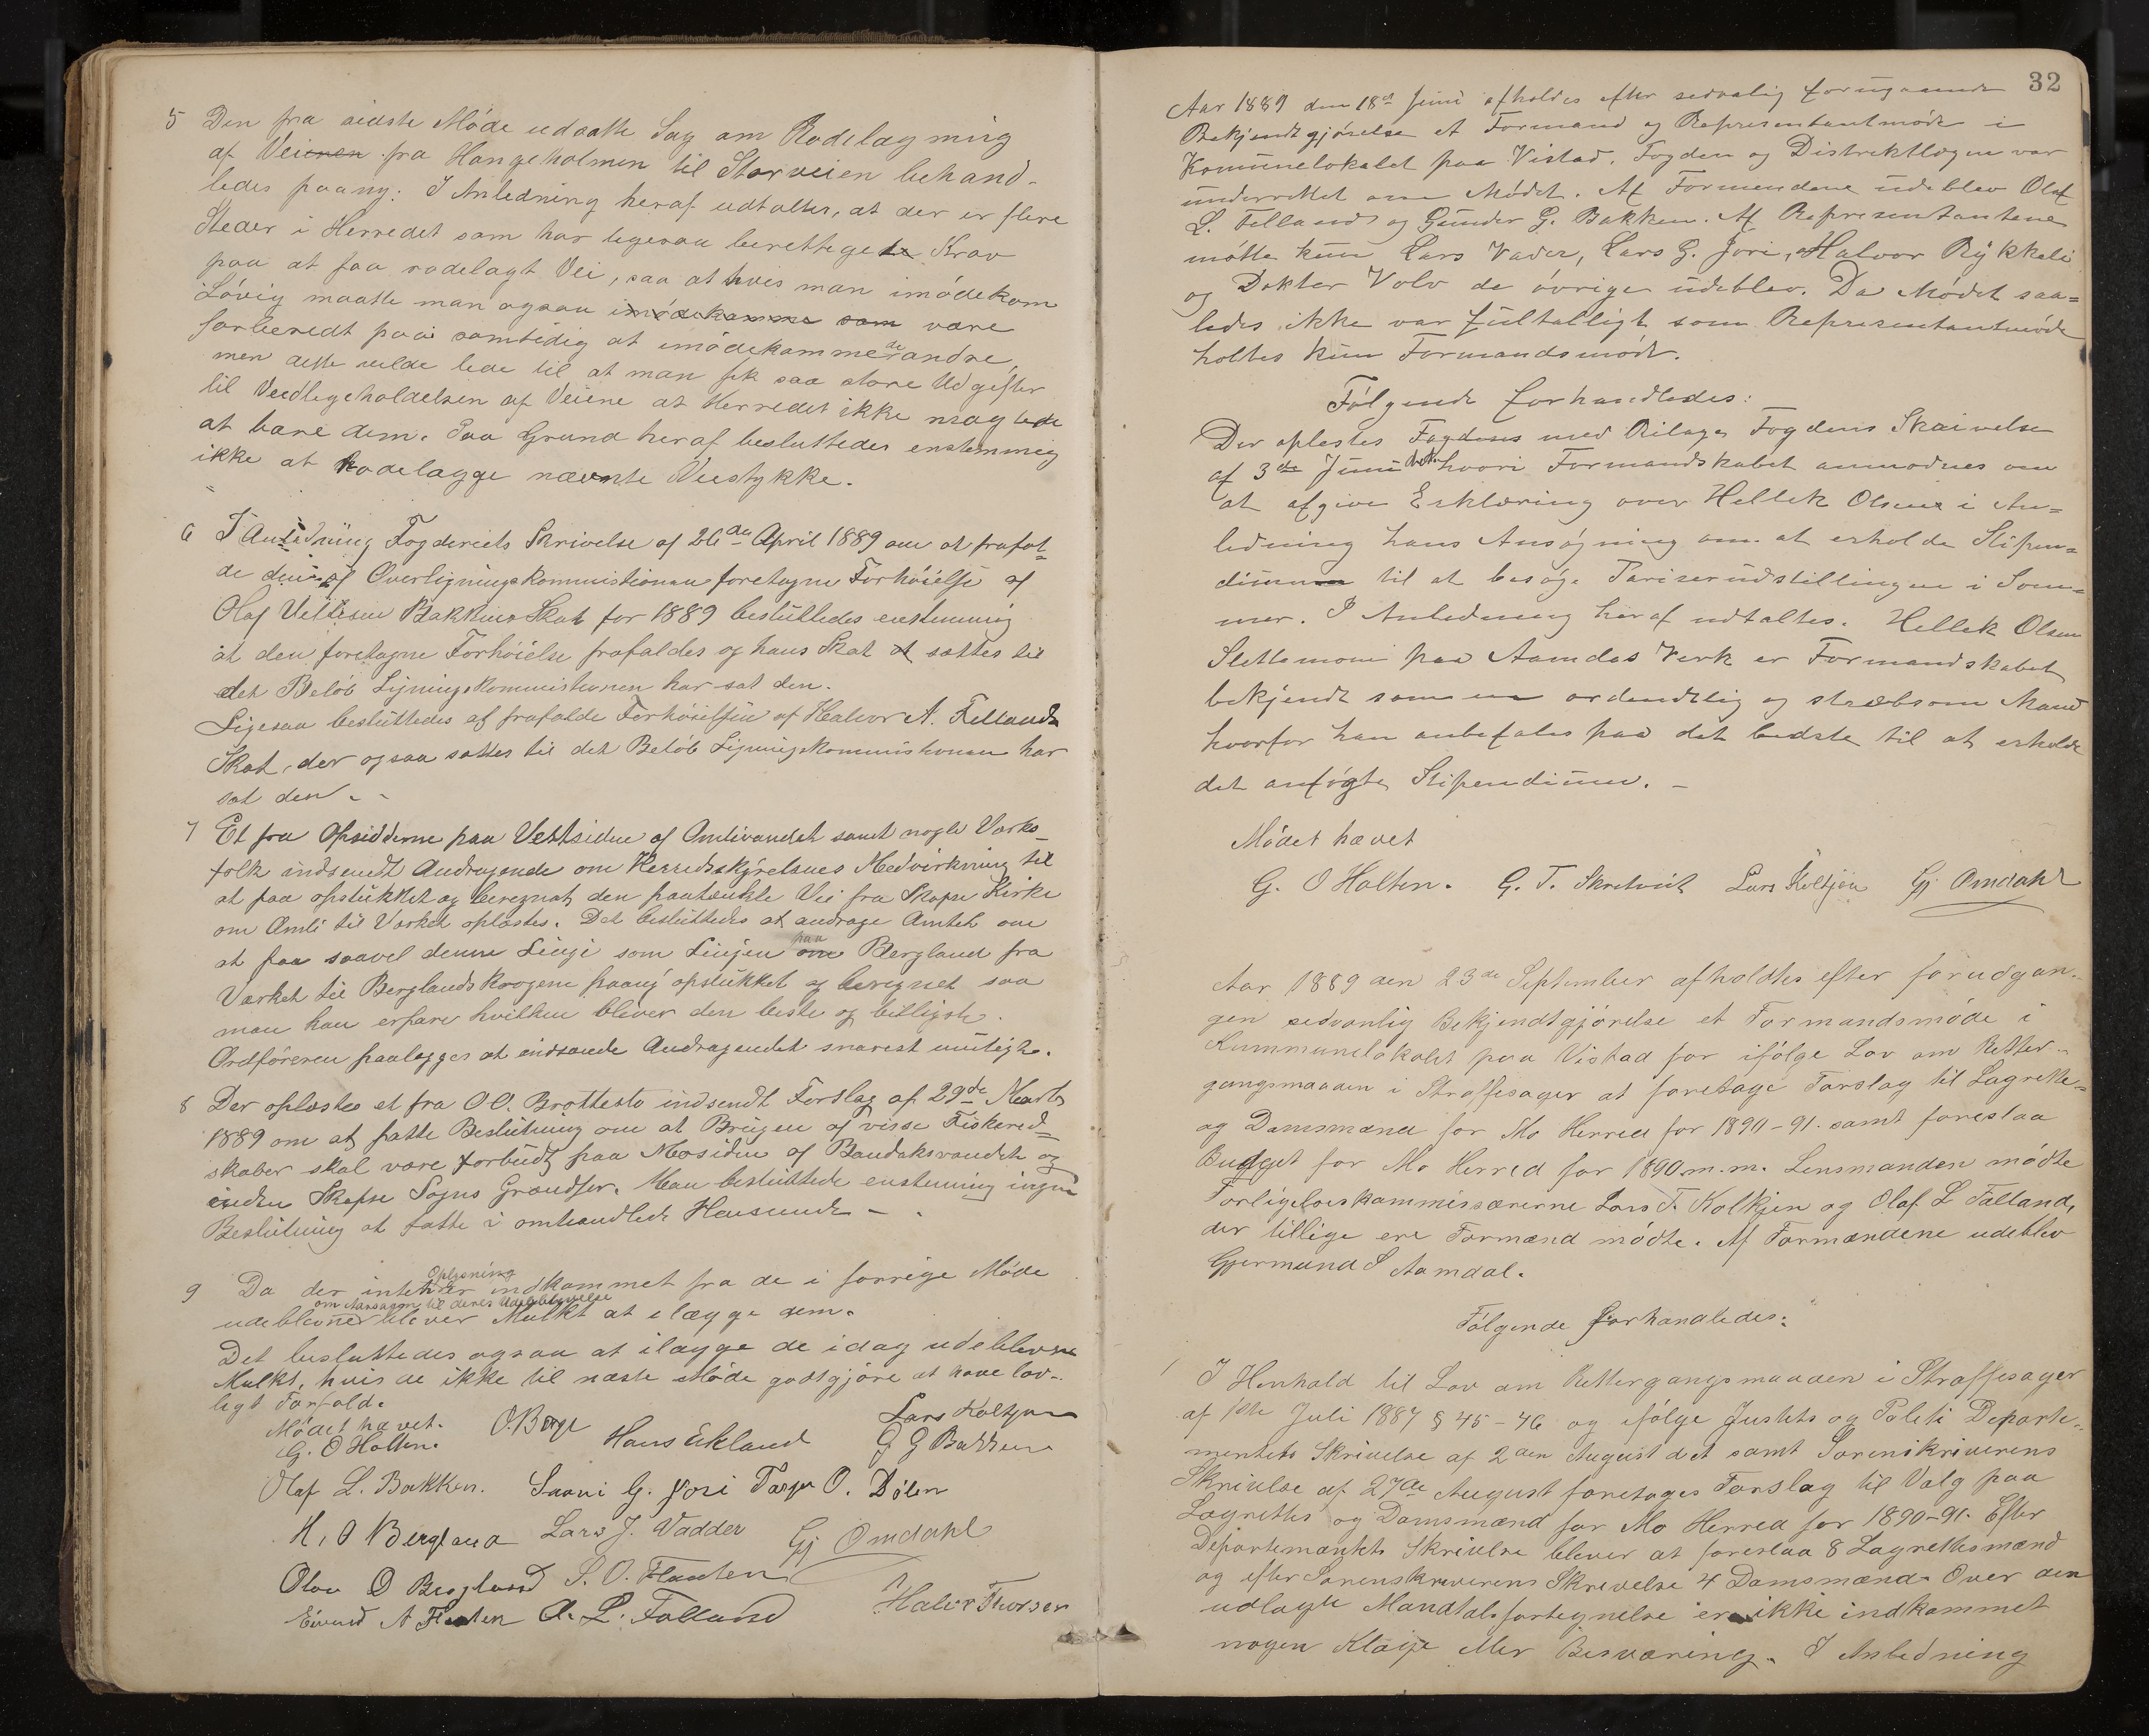 5 Den fra sidste Møde udsatte Sag om Rodelægning
af Veienen fra Hangeholmen til Storveien behand-
ledes paany. I Anledning heraf udtaltes, at der er flere
Steder i Herredet som har ligesaa berettigede Krav
paa at faa rodelagt Vei, saa at hvis man imødekom
Løvig maatte man ogsaa imødekomme som være
forberedt paa samtidig at imødekomme de andre,
men dette vilde lede til at man fik saa store Udgifter
til Vedligeholdelsen af Veiene at Herredet ikke magtede
at bære dem. Paa Grund heraf besluttedes enstemmig
ikke at Rodelægge nævnte Veistykke.
6 I Anledning Fogderiets Skrivelse af 26de April 1889 om at frafal-
de den af Overligningskommissionen foretagne Forhøielse af
Olaf Vettesen Bakkens Skat for 1889 besluttedes enstemmig
at den foretagne Forhøielse frafaldes og hans Skat at sættes til
det Beløb Ligningskommissionen har sat den.
Ligesaa besluttedes at frafalde Forhøielsen af Halvor A. Fellands
Skat, der ogsaa sættes til det Beløb Ligningskommissionen har
sat den. -
7 Et fra Opsidderne paa Vestsiden af Omlivandet samt nogle Værks-
folk indsendt Andragende om Herredsstyrelsens Medvirkning til
at faa opstukket og beregnet den paatænkte Vei fra Skafse Kirke
om Omli til Værket oplæstes. Det besluttedes at andrage Amtet om
at faa saavel denne Linje som Linjen om paa Bergland fra
Værket til Berglandskrogene paany opstukket og beregnet saa
man kan erfare hvilken bliver den beste og billigste.
Ordføreren paalægges at indsende Andragendet snarest muligt.
8 Der oplæstes et fra O.O. Brøttestø indsendt Forslag af 29de Marts
1889 om at fatte Beslutning om at Brugen af visse Fiskered-
skaber skal være forbudt paa Mosiden af Bandaksvandet og
inden Skafse Sogns Grændser. Man besluttede enstemmig ingen
Beslutning at fatte i omhandlede Henseende -
9 Da der intet Oplysning er indkommet fra de i forrige Møde
udeblevne om Aarsagen til deres Udeblivelse bliver Mulkt at ilægge dem.
Det besluttedes ogsaa at ilægge de idag udeblevne
Mulkt, hvis de ikke til næste Møde godtgjøre at have lov-
ligt Forfald.
Mødet hævet.
G. O Holten. O. Berge Hans Ekland Lars Koltjøn G G Bakken
Olaf L. Bakken. Saavi G. Jori Tarje O. Dølen
H. O Bergland Lars J. Vadder Gj Omdahl
Olav O Bergland S. O. Flauten
Eivind A Flauten O. L. Falland Halvor Thorsen
32
Aar 1889 den 18de Juni afholdes efter sedvalig forugaaende
Bekjendtgjørelse et Formand og Representantmøde i
Komunelokalet paa Vistad. Fogden og Distriktlægen var
underrettet om Mødet. Af Formendene udeblev Olaf
L. Fellands og Gunder G. Bakken. Af Representantene
møtte kun Lars Vader, Lars G. Jori, Halvor Rykkeli
og Dokter Volv de øvrige udeblev. Da Mødet saa-
ledes ikke var fultalligt som Representantmøde
holtes kun Formandsmøde.
Følgende forhandledes:
Der oplestes Fogdens med Bilage Fogdens Skrivelse
af 3de Juni hvori Formandskabet anmodnes om
at afgive Erklæring over Hellek Olsens i An-
ledning hans Ansøgning om at erholde Stipen-
dium til at besøge Pariserudstillingen i Som-
mer. I Anledning heraf udtaltes. Hellek Olsen
Slettemoen paa Aamdas Verk er Formandskabet
bekjendt som en ordendtlig og stræbsom Mand
hvorfor han anbefales paa det bedste til at erholde
det ansøgte Stipendium. -
Mødet hævet
G. O Holten. G. T. Skretveit Lars Koltjøn Gj Omdahl
Aar 1889 den 23de September afholdtes efter forudgan-
gen sedvanlig Bekjendtgjørelse et Formandsmøde i
Kummunelokalet paa Vistad for ifølge Lov om Retter-
gangsmaaden i Straffesager at foretage Forslag til Lagrette-
og Domsmænd for Mo Herred for 1890-91. samt foreslaa
Budget for Mo Herred for 1890 m.m. Lensmanden mødte
Forligelseskommissærerne Lars T. Koltjen og Olaf L Falland,
der tillige ere Formænd mødte. Af Formændene udeblev
Gjermund S Aamdal.
Følgende forhandledes:
1 I Henhold til Lov om Rettergangsmaaden i Straffesager
af 1ste Juli 1887 § 45-46 og ifølge Justits og Politi Departe-
mentets Skrivelse af 2den August d et samt Sorenskriverens
Skrivelse af 27de August foretages Forslag til Valg paa
Lagrettes og Domsmænd for Mo Herred for 1890-91. Efter
Departementets Skrivelse bliver at foreslaa 8 Lagrettesmænd
og efter Sorenskriverens Skrivelse 4 Domsmænd. Over den
udlagte Mandtalsfortegnelse er ikke indkommet
nogen Klage eller Besværing. I Anledning